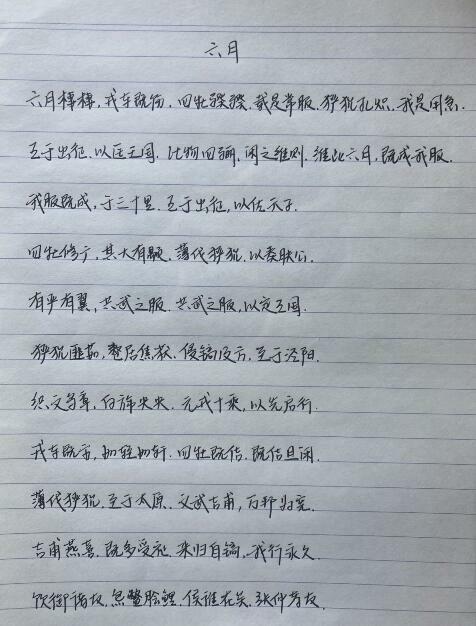 六月
六月棲棲,戎车既饬.四牡骙骙,载是常服.玁狁孔炽,我是用急.
王于出征,以匡王国.比物四骊,闲之维则.维此六月,既成我服.
我服既成,于三十里.王于出征,以佐天子.
四牡修广,其大有颙.薄伐玁狁,以奏肤公.
有严有翼,共武之服.共武之服,以定王国.
玁狁匪茹,整居焦获.侵镐及方,至于泾阳.
织文鸟章,白旆央央.元戎十乘,以先启行.
戎车既安,如轾如轩.四牡既佶,既佶且闲.
薄伐玁狁,至于太原.文武吉甫,万邦为宪.
吉甫燕喜,既多受祉.来归自镐,我行永久.
饮御诸友,炰鳖脍鲤.侯谁在矣,张仲孝友.